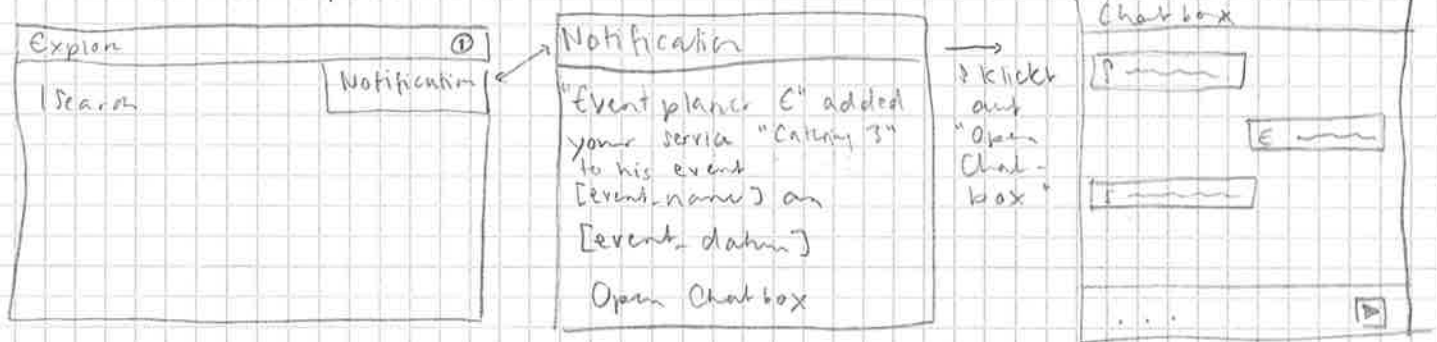 Explore ①
Search
Notification
Notification
"Eventplaner E" added
your service "Catering 3"
to his event
[event_name] on
[event_datum]
Open Chatbox
klickt
auf
"Open
Chat-
box"
Chatbox
E
. . .